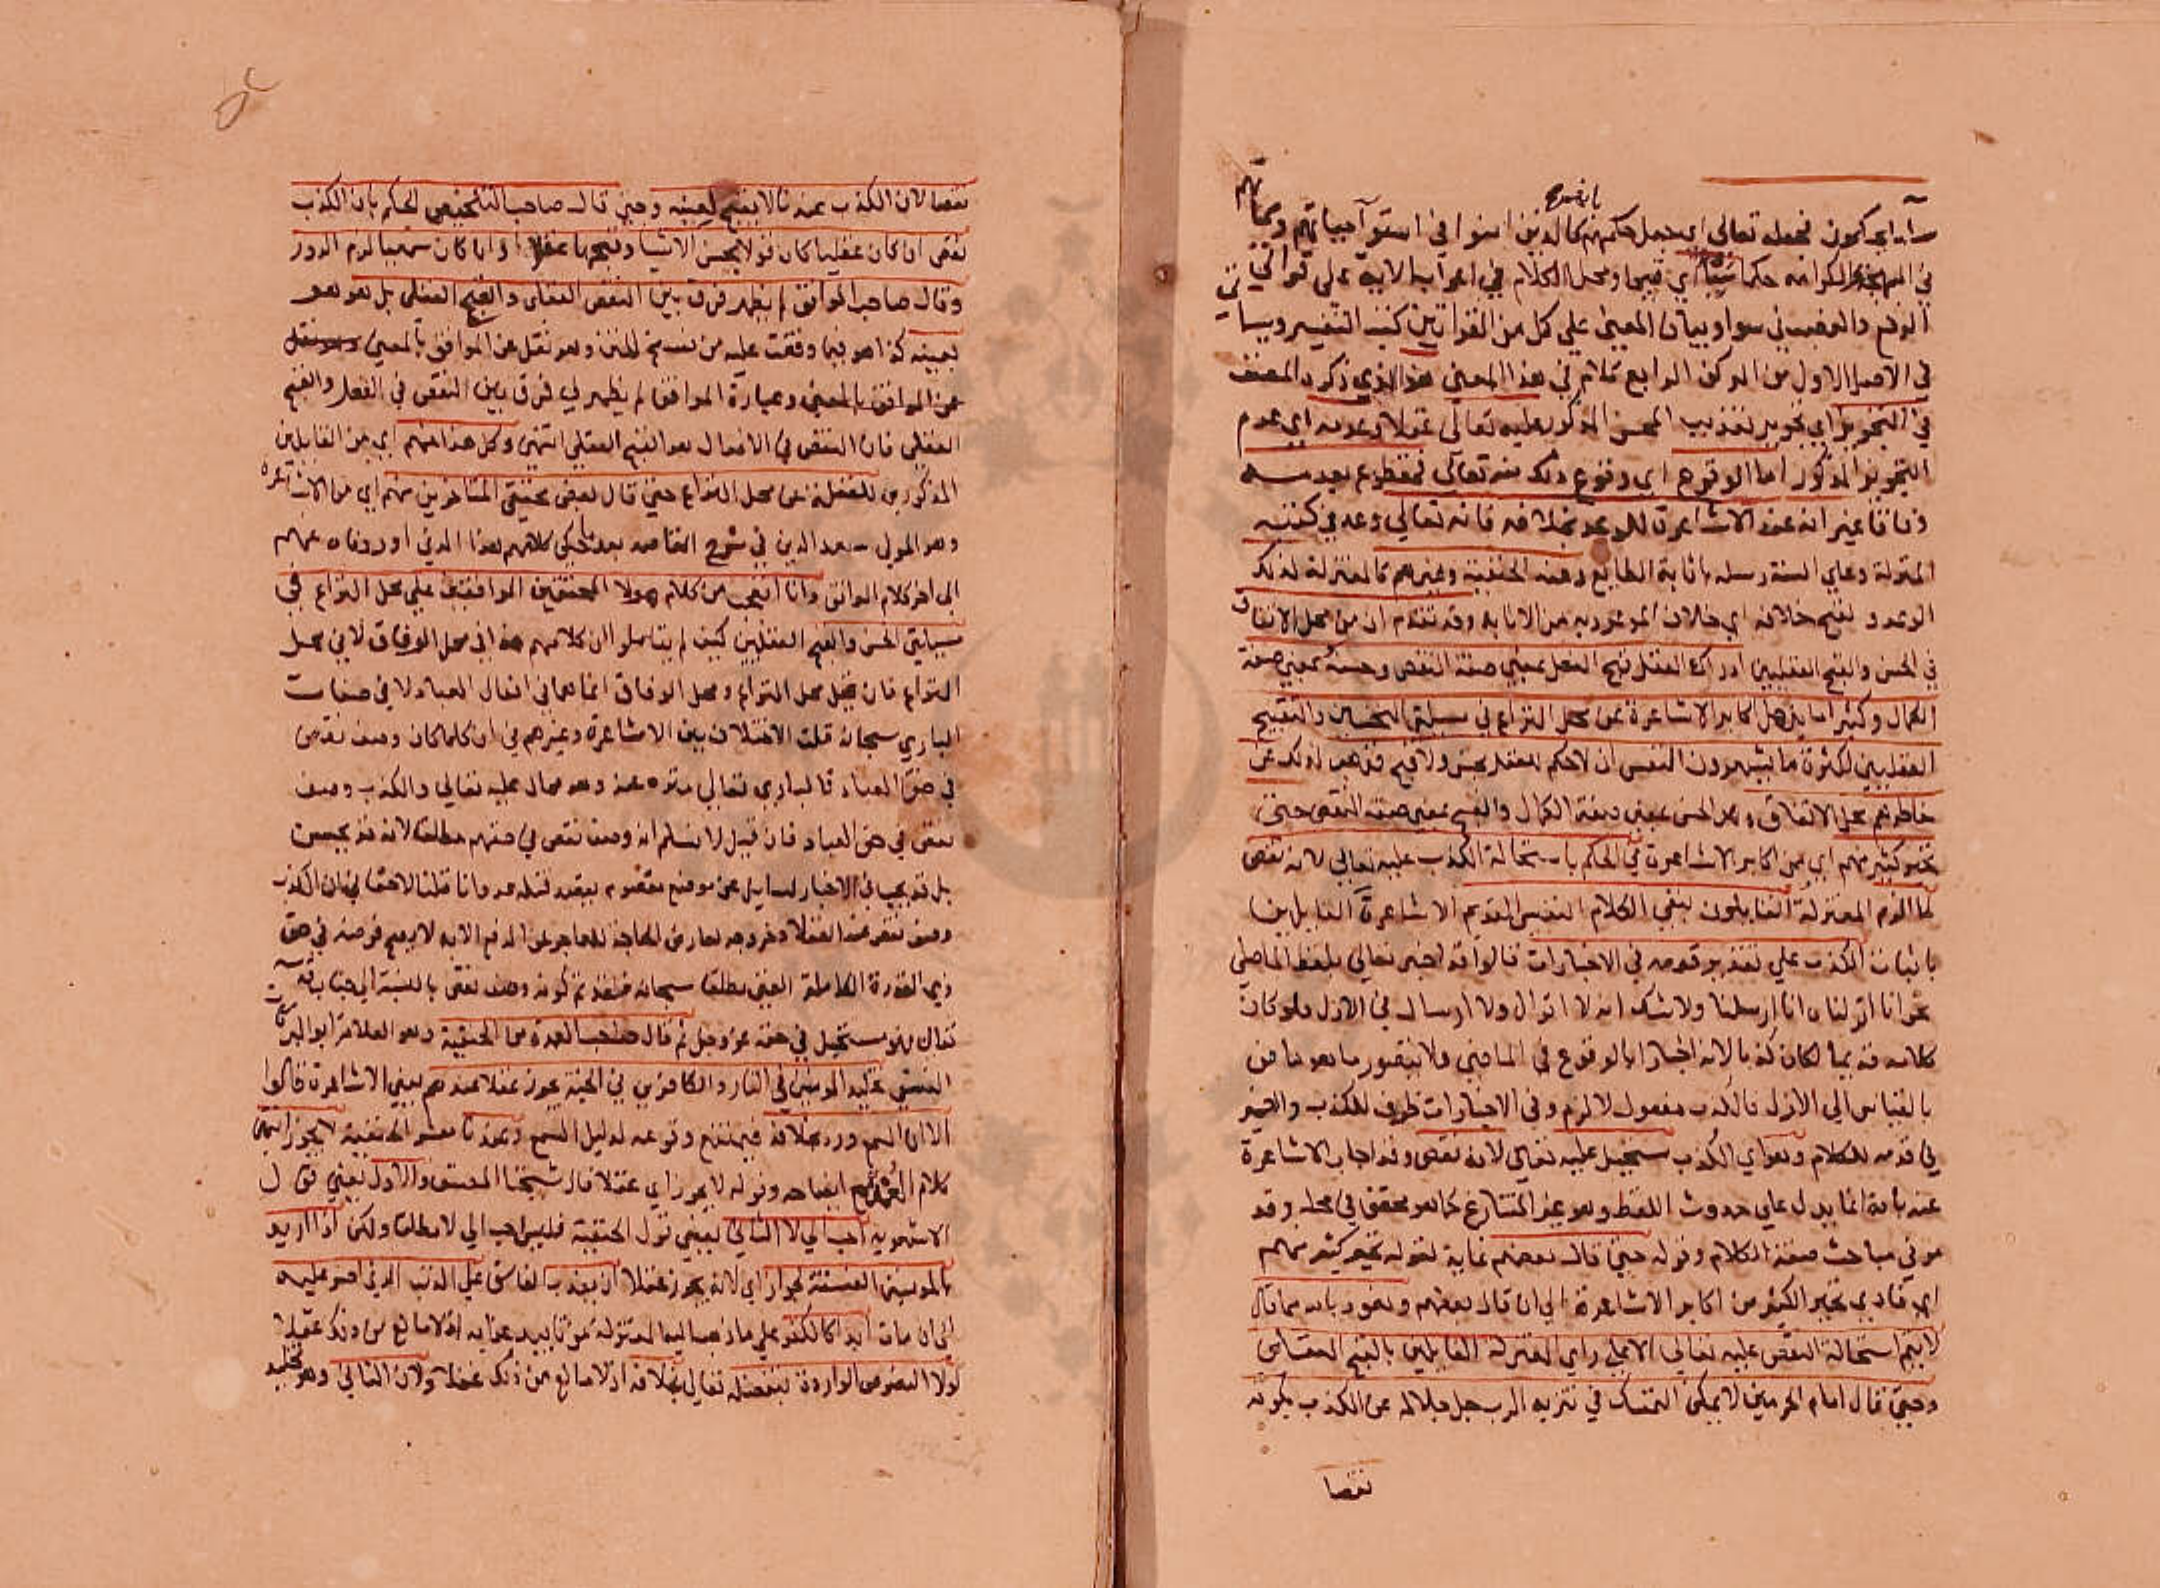 بالرفع
ساء ما يحكمون فجعله تعالى اي جعل حكمهم كالذين امنوا في استواء حياتهم ومماتهم
في البهجة والكرامة حكما سيئا اي قبيحا ومحل الكلام في اعراب الاية على قراتي
الرفع والنصب في سواء وبيان المعنى على كل من القراتين كتب التفسير وسيأتي
في الاصل الاول من الركن الرابع كلام في هذا المعنى هذا الذي ذكره المصنف
في التجويز اي تجويز تعذيب المحسن المذكور عليه تعالى عقلا وعدمه اي عدم
التجويز المذكور اما الوقوع اي وقوع ذلك منه تعالى فمقطوع بعدمه
وفاقا غير انه عند الاشاعرة للوعد بخلافه فانه تعالى وعد في كتبه
المنزلة وعلى السنة رسله باثابة الطايع وعند الحنفية وغيرهم كالمعتزلة لذلك
الوعد و لقبح خلافه اي خلاف الموعود به من الاثابة وقد تقدم ان من محل الاتفاق
في الحسن والقبح العقليين ادراك العقل قبح الفعل بمعنى صفة النقص وحسنه بمعنى صفة
الكمال وكثيرا ما يذهل اكابر الاشاعرة عن محل النزاع في مسيلتي التحسين والتقبيح
العقليين لكثرة ما يشعرون النفس ان لا حكم للعقل بحسن ولا قبح فذهب لذلك عن
خاطرهم محل الاتفاق وهو الحسن بمعنى صفة الكمال والقبح بمعنى صفة النقص حتى
تحير كثير منهم اي من اكابر الاشاعرة في الحكم باستحالة الكذب عليه تعالى لانه نقص
لما الزم المعتزلة القايلون بنفي الكلام النفسي القديم الاشاعرة القايلين
باثبات الكذب على تقدير قدمه في الاخبارات قالوا قد اخبر تعالى بلفظ الماضي
نحو انا انزلناه انا ارسلنا ولا شك انه لا انزال ولا ارسال في الازل فلو كان
كلامه قديما لكان كذبا لانه اخبار بالوقوع في الماضي ولا يتصور ما هو ماض
بالقياس الى الازل فالكذب مفعول لالزم وفي الاخبارات ظرف للكذب والضمير
في قدمه للكلام وهو اي الكذب مستحيل عليه تعالى لانه نقص وقد اجاب الاشاعرة
عنه بانه انما يدل على حدوث اللفظ وهو غير المتنازع كما هو محقق في محله وقد
مر في مباحث صفة الكلام وقوله حتى قال بعضهم غاية لقوله تحير كثير منهم
اي فادى تحير الكثير من اكابر الاشاعرة الى ان قال بعضهم ونعوذ بالله مما قال
لا يتم استحالة النقص عليه تعالى الا على راي المعتزلة القايلين بالقبح العقلي
وحتى قال امام الحرمين لا يمكن التمسك في تنزيه الرب جل جلاله عن الكذب بكونه
نقصا
نقصا لان الكذب عندنا لا يقبح لعينه وحتى قال صاحب التلخيص الحكم بان الكذب
نقص ان كان عقليا كان قولا بحسن الاشيا وقبحها عقلا وان كان سمعيا لزم الدور
وقال صاحب المواقف لم يظهر فرق بين النقص العقلي والقبح العقلي بل هو هو
بعينه كذا هو فيما وقفت عليه من نسخ المتن وهو نقل عن المواقف بالمعنى
وعبارة المواقف لم يظهر لي فرق بين النقص في الفعل والقبح
العقلي فان النقص في الافعال هو القبح العقلي انتهى وكل هذا منهم اي من القايلين
المذكورين للغفلة عن محل النزاع حتى قال بعض محققي المتاخرين منهم اي من الاشاعرة
وهو المولى سعد الدين في شرح المقاصد بعد ما حكى كلامهم هذا الذي اوردناه عنهم
الى اخر كلام المواقف وانا اتعجب من كلام هولا المحققين الواقفين على محل النزاع في
مسيلتي الحسن والقبح العقليين كيف لم يتاملوا ان كلامهم هذا في محل الوفاق لا في محل
النزاع فان قيل محل النزاع ومحل الوفاق انما هما في افعال العباد لا في صفات
الباري سبحانه قلت لا اختلاف بين الاشاعرة وغيرهم في ان كلما كان وصف نقص
في حق العباد فالباري تعالى منزه عنه وهو محال عليه تعالى والكذب وصف
نقص في حق العباد فان قيل لا نسلم انه وصف نقص في حقهم مطلقا لانه قد يحسن
بل قد يجب في الاخبار لسايل عن موضع معصوم يقصد قتله عدوانا قلنا لا خفا في ان الكذب
وصف نقص عند العقلا وخروجه لعارض الحاجة للعاجز عن الدفع الا به لا يصح فرضه في حق
ذي القدرة الكاملة الغني مطلقا سبحانه فقد تم كونه وصف نقص بالنسبة الى جناب قدسه
تعالى فهو مستحيل في حقه عز وجل ثم قال صاحب العمدة من الحنفية وهو العلامة ابو البركات
النسفي تخليد المومنين في النار والكافرين في الجنة يجوز عقلا عندهم يعني الاشاعرة قالوا
الا ان السمع ورد بخلافه فيمتنع وقوعه لدليل السمع وعندنا معشر الحنفية لا يجوز انتهى
كلام العمدة مع ايضاحه وقوله لا يجوز اي عقلا قال شيخنا المصنف والاول يعني قول
الاشعرية احب الي لا الثاني يعني قول الحنفية فليس احب الي لا مطلقا ولكن اذا اريد
بالمومنين الفسقة لجواز اي لانه يجوز عقلا ان يعذب الفاسق على الذنب الذي اصر عليه
الى ان مات ابدا كالكفر على ما ذهب اليه المعتزلة من تابيد عذابه اذ لا مانع من ذلك عقلا
لولا النصوص الواردة بتفضله تعالى بخلافه اذ لا مانع من ذلك عقلا ولان الثاني وهو تخليد